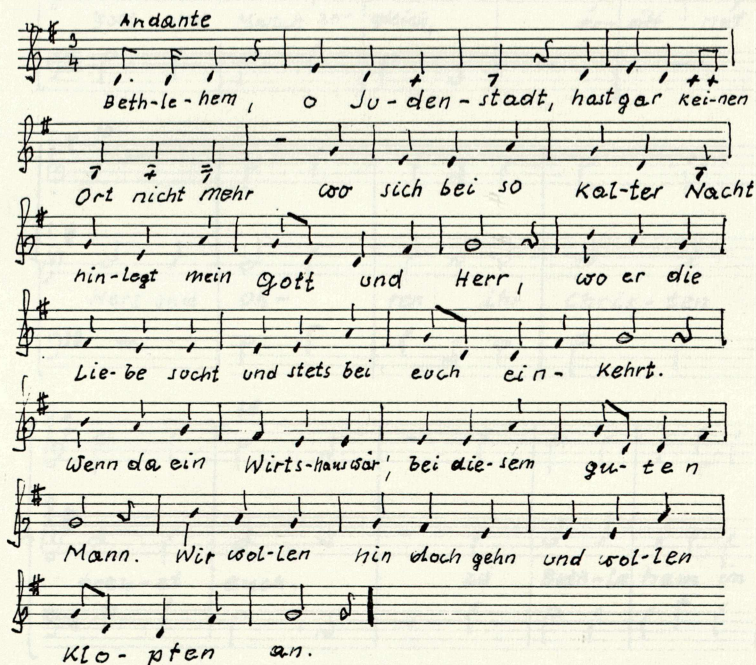 Andante
3
4
Beth-le-hem, o Ju-den-stadt, hast gar kei-nen
Ort nicht mehr wo sich bei so kal-ter Nacht
hin-legt mein Gott und Herr, wo er die
Lie-be sucht und stets bei euch ein-kehrt.
Wenn da ein Wirts-haus wär', bei die-sem gu-ten
Mann. Wir wol-len hin doch gehn und wol-len
Klo-pfen an.